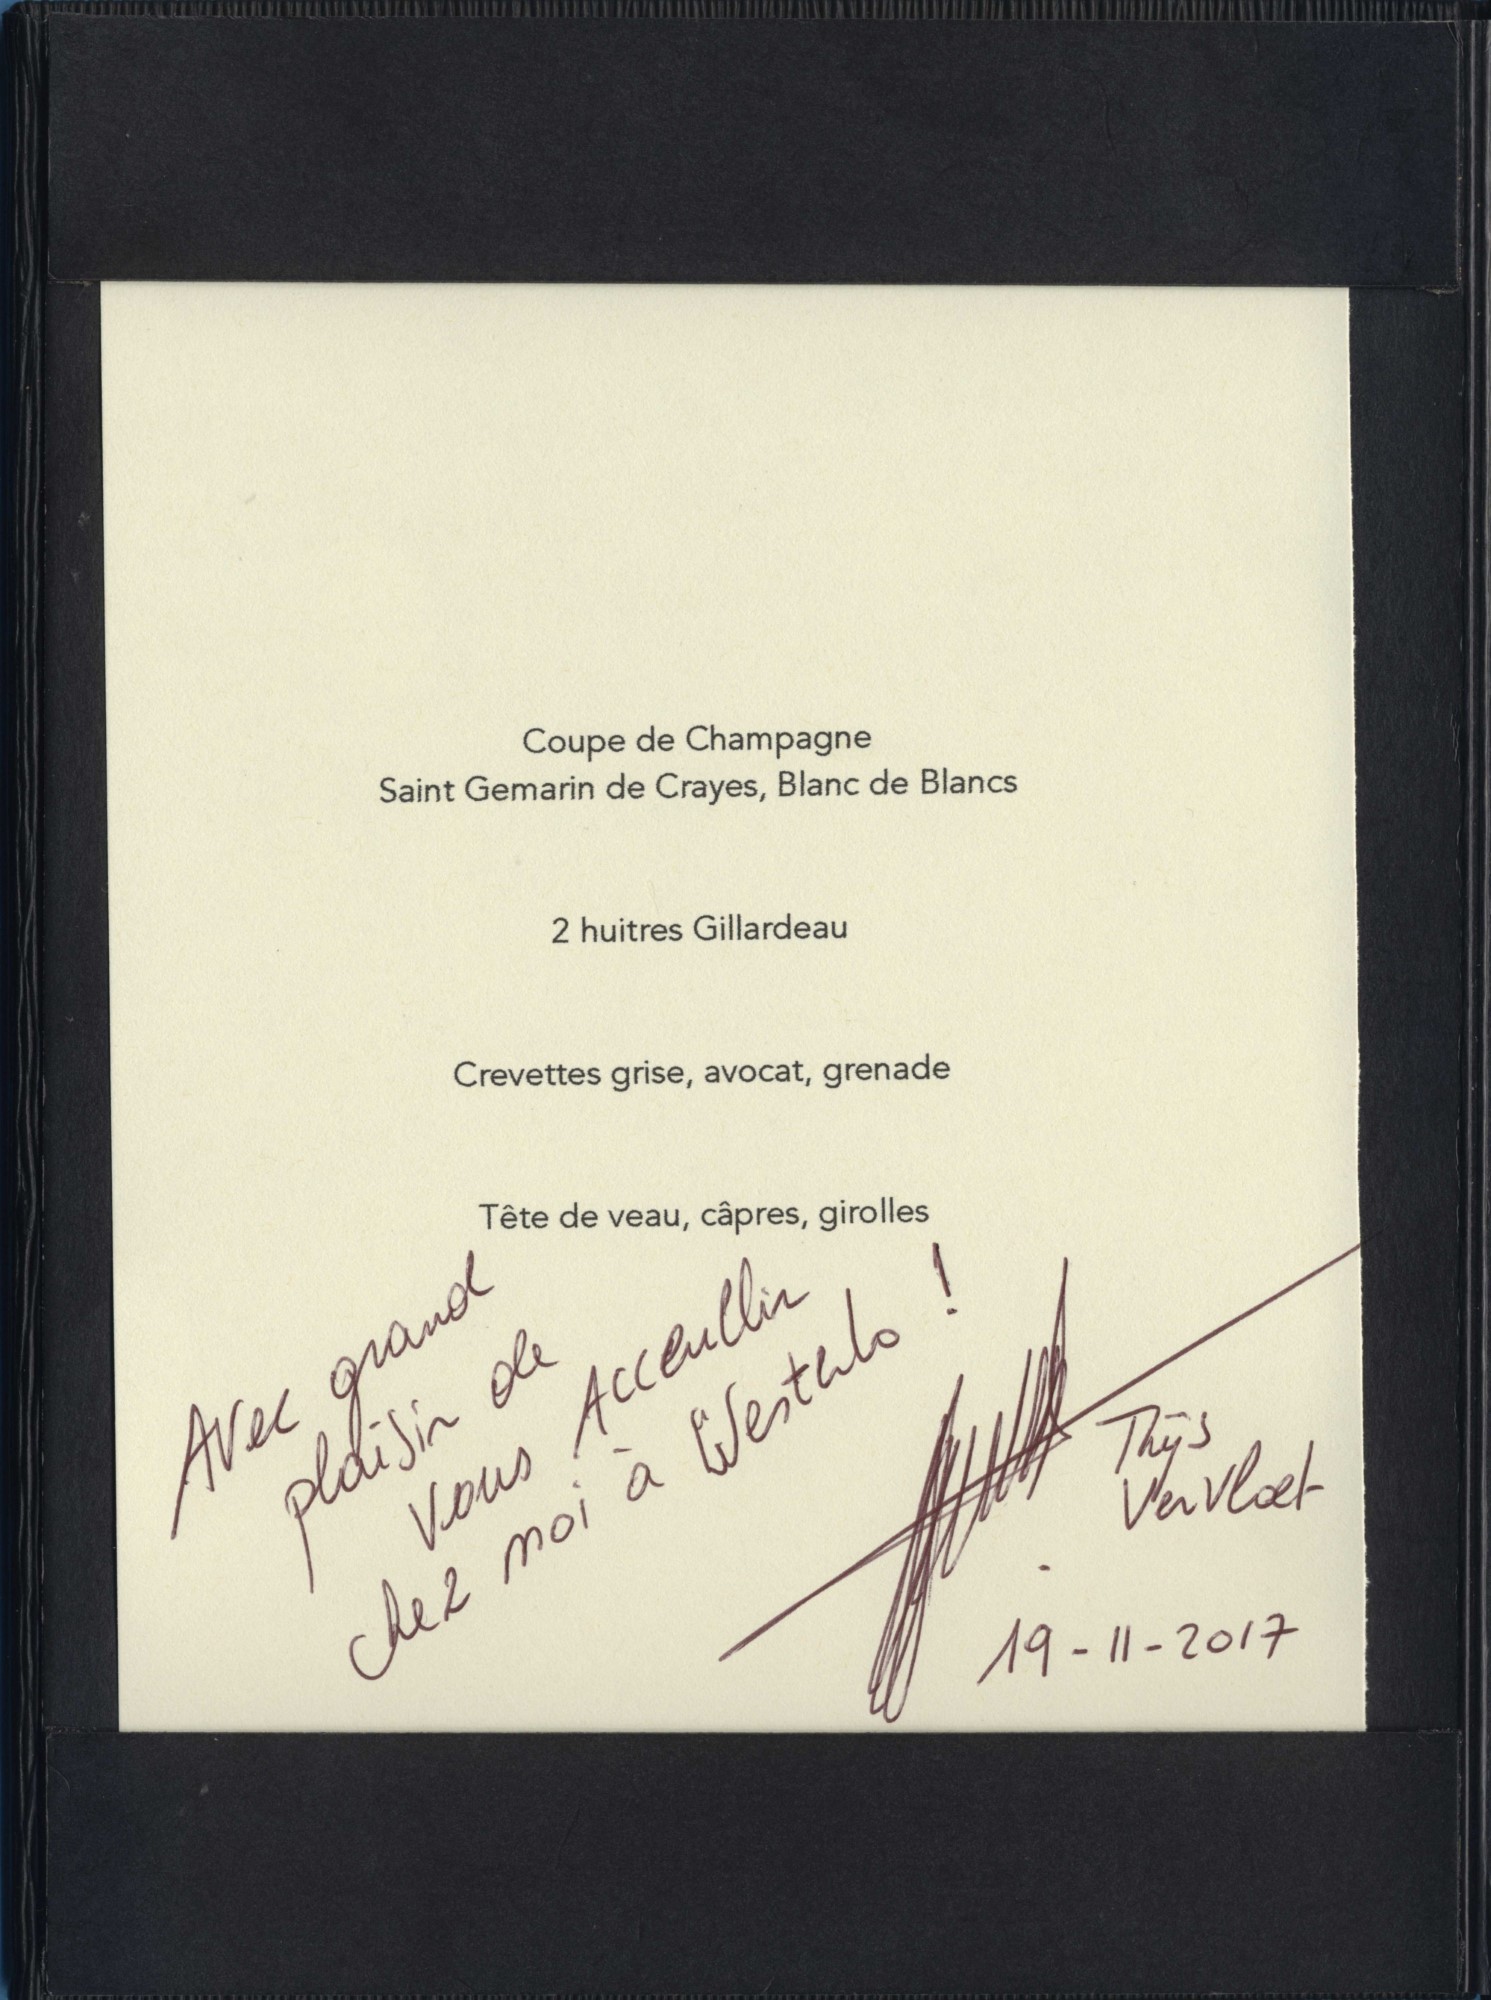 Coupe de Champagne
Saint Gemarin de Crayes, Blanc de Blancs
2 huitres Gillardeau
Crevettes grise, avocat, grenade
Tête de veau, câpres, girolles
Avec grand
plaisir de
vous Acceullir
chez moi à Westerlo !
Thijs
Vervloet
19-11-2017